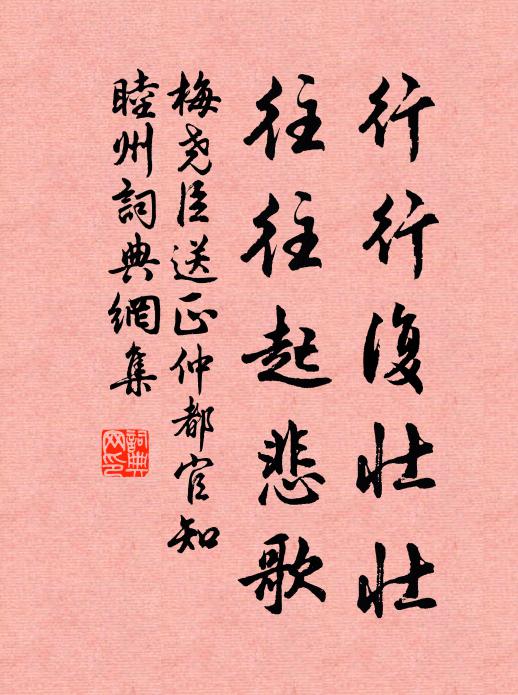 行行復壯壯
往往起悲歌
梅尧臣送正仲都官知
睦州詞典網集
詞典
网印